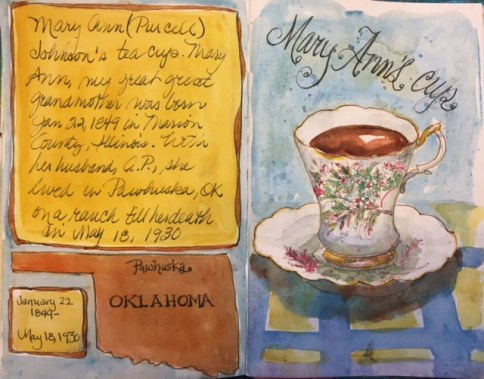 Mary Ann (Purcell)
Johnson's tea cup. Mary
Ann, my great great
grandmother was born
Jan 22, 1849 in Marion
County, Illinois. With
her husband, A.P., she
lived in Pawhuska, OK
on a ranch till her death
in May 18, 1930
Pawhuska
OKLAHOMA
January 22
1849-
May 18, 1930
Mary Ann's Cup